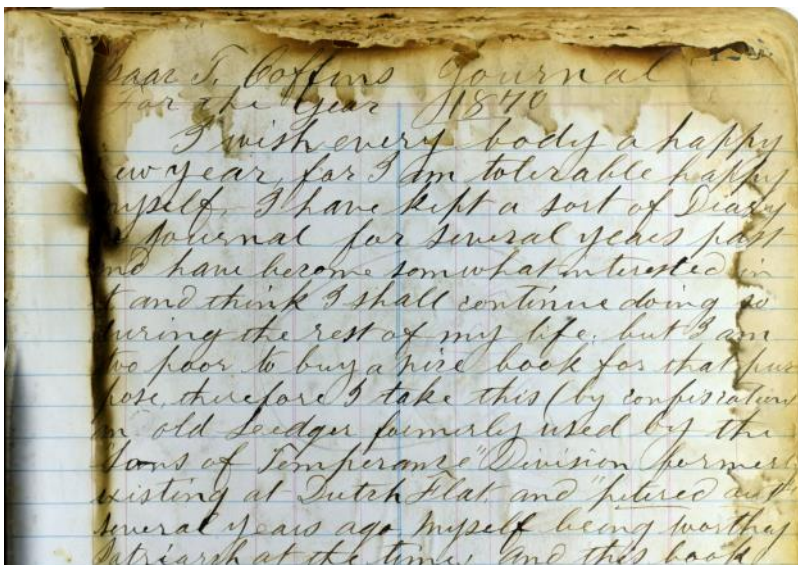 Isaac T. Coffins Journal
For the Year 1870
I wish every body a happy
new year, for I am tolerable happy
myself, I have kept a sort of Diary
or Journal for several years past
and have become somwhat interested in
it and think I shall continue doing so
during the rest of my life, but I am
too poor to buy a nice book for that pur
pose, therefore I take this (by confiscation
an old Leedger formerly used by the
Sons of Temperance" Division formerly
existing at Dutch Flat and "petered out"
several years ago myself being worthy
Patriarch at the time, and this book